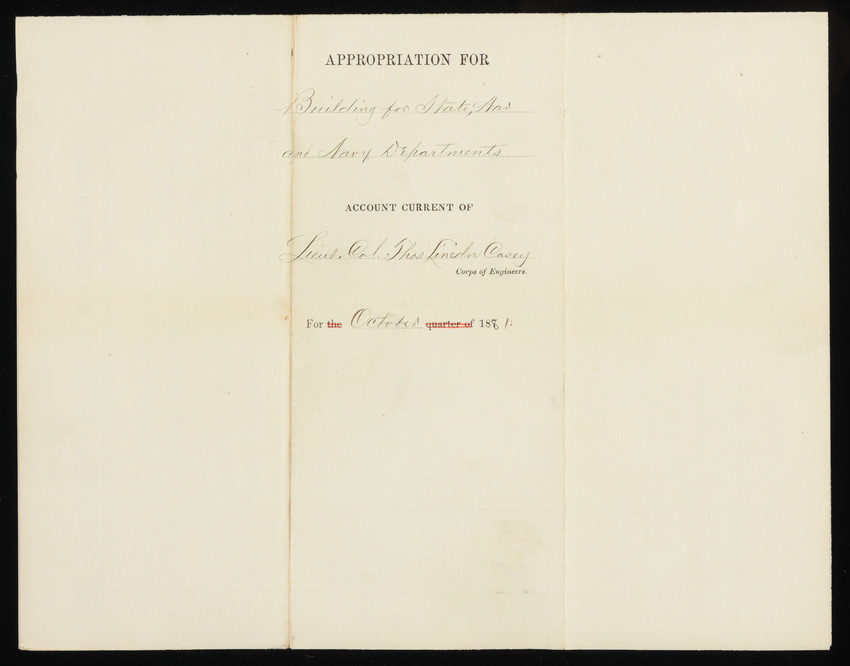 APPROPRIATION FOR
Building for State, War
and Navy Departments
ACCOUNT CURRENT OF
Lieut. Col. Thos Lincoln Casey
Corps of Engineers.
For the October quarter of 1881.